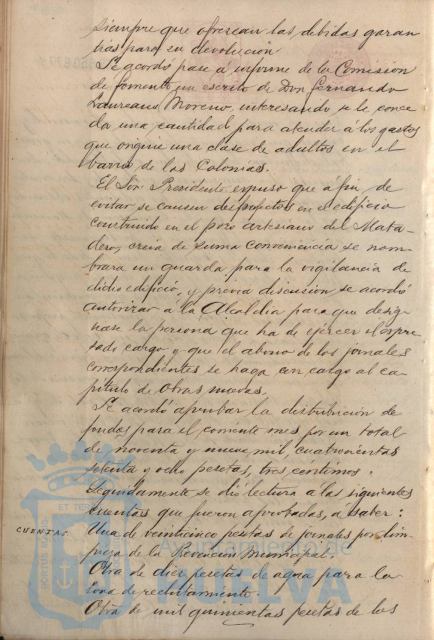 siempre que ofrezcan las debidas garan
tias para su devolución
Se acordó pase á informe de la Comision
de fomento un escrito de Don Fernando
Laureano Moreno, interesando se le conce
da una cantidad para atender á los gastos
que origine una clase de adultos en el
barrio de las Colonias.
El Sor. Presidente expuso que a fin de
evitar se causen desperfectos en el edificio
construido en el pozo artesiano del Mata-
dero, creia de suma conveniencia se nom-
brara un guarda para la vigilancia de
dicho edificio, y previa discusion se acordó
autorizar a la Alcaldia para que desig-
nase la persona que ha de ejercer el expre
sado cargo y que el abono de los jornales
correspondientes se haga con cargo al ca-
pitulo de Obras nuevas.
Se acordó aprobar la distribucion de
fondos para el corriente mes por un total
de noventa y nueve mil, cuatrocientas
setenta y ocho pesetas, tres centimos.
Seguidamente se dió lectura a las siguientes
cuentas que fueron aprobadas, a saber:
CUENTAS. Una de veinticinco pesetas de jornales por lim-
pieza de la Prevencion Municipal.
Otra de diez pesetas de agua para la
Zona de reclutamiento.
Otra de mil quinientas pesetas de los
Ayuntamiento de
HUELVA